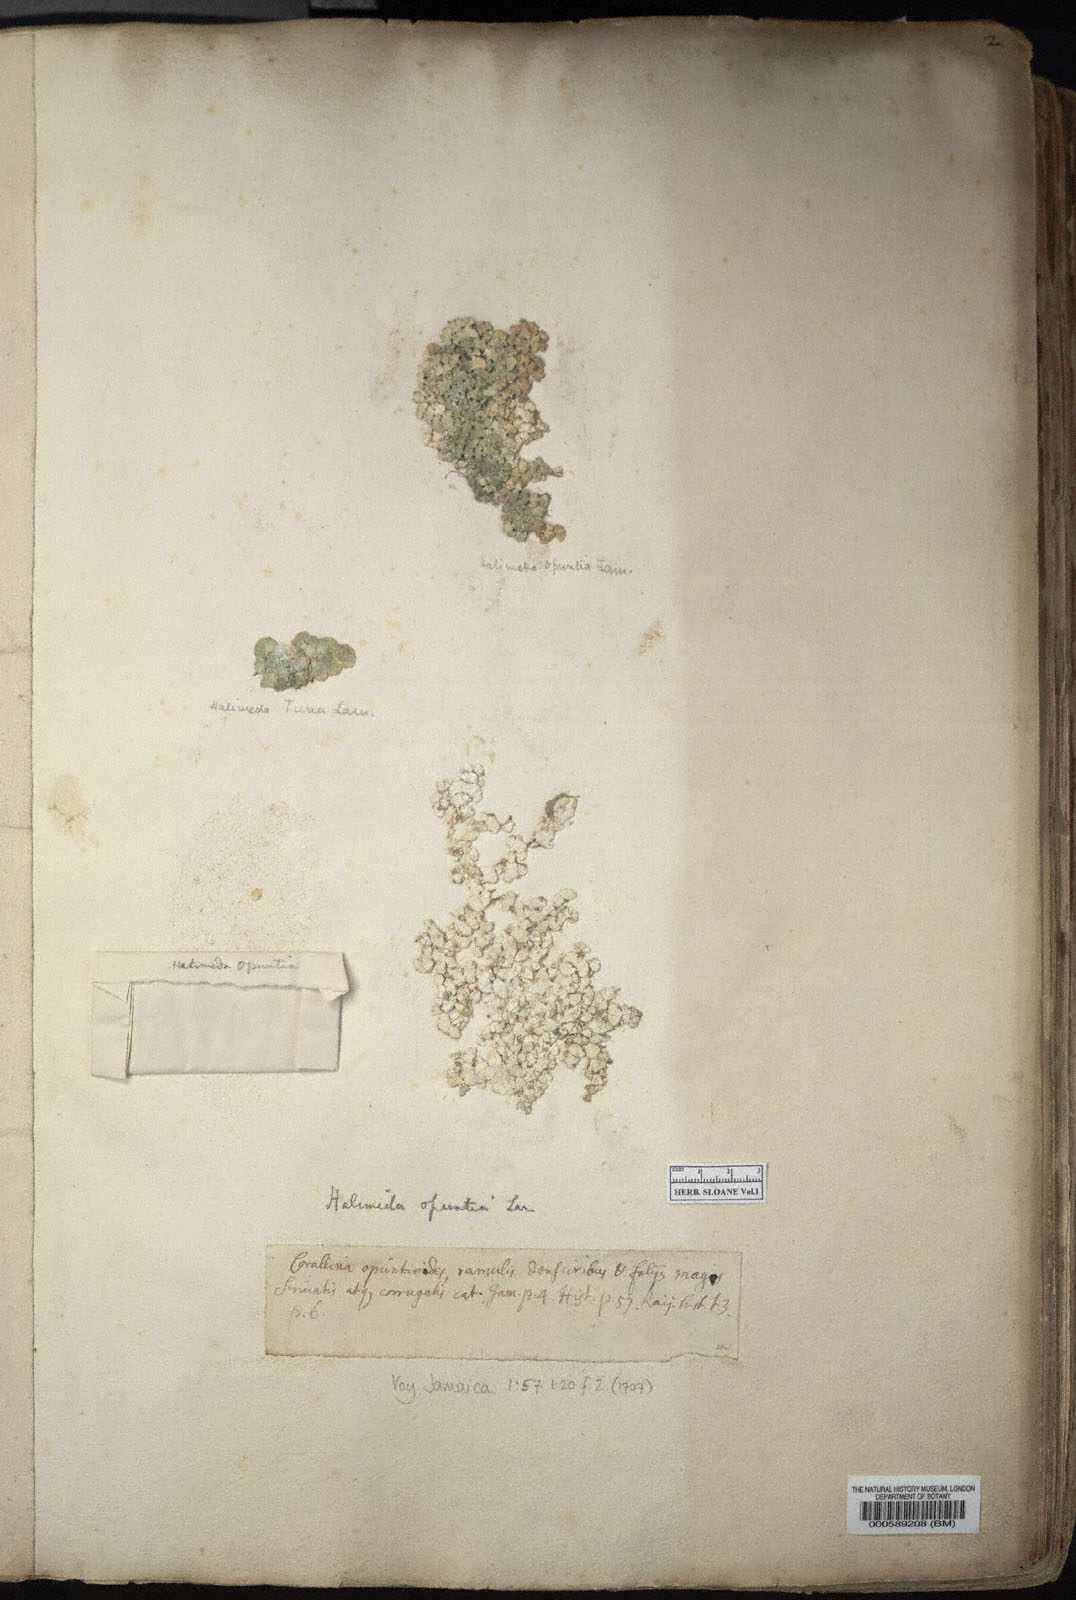 2
Halimeda opuntia Lam.
Halimeda Tuna Lam.
Halimeda Opuntia
HERB. SLOANE Vol.1
Halimeda opuntia Lam
Corallina opuntioides, ramulis densioribus & folijs magis
sinuatis atq; corrugatis cat. Jam. p. 4. Hist. p. 57. Raij. hist. t. 3.
p. 6.
Voy Jamaica 1:57 t.20 f.2 (1707)
THE NATURAL HISTORY MUSEUM, LONDON
DEPARTMENT OF BOTANY
000589208 (BM)